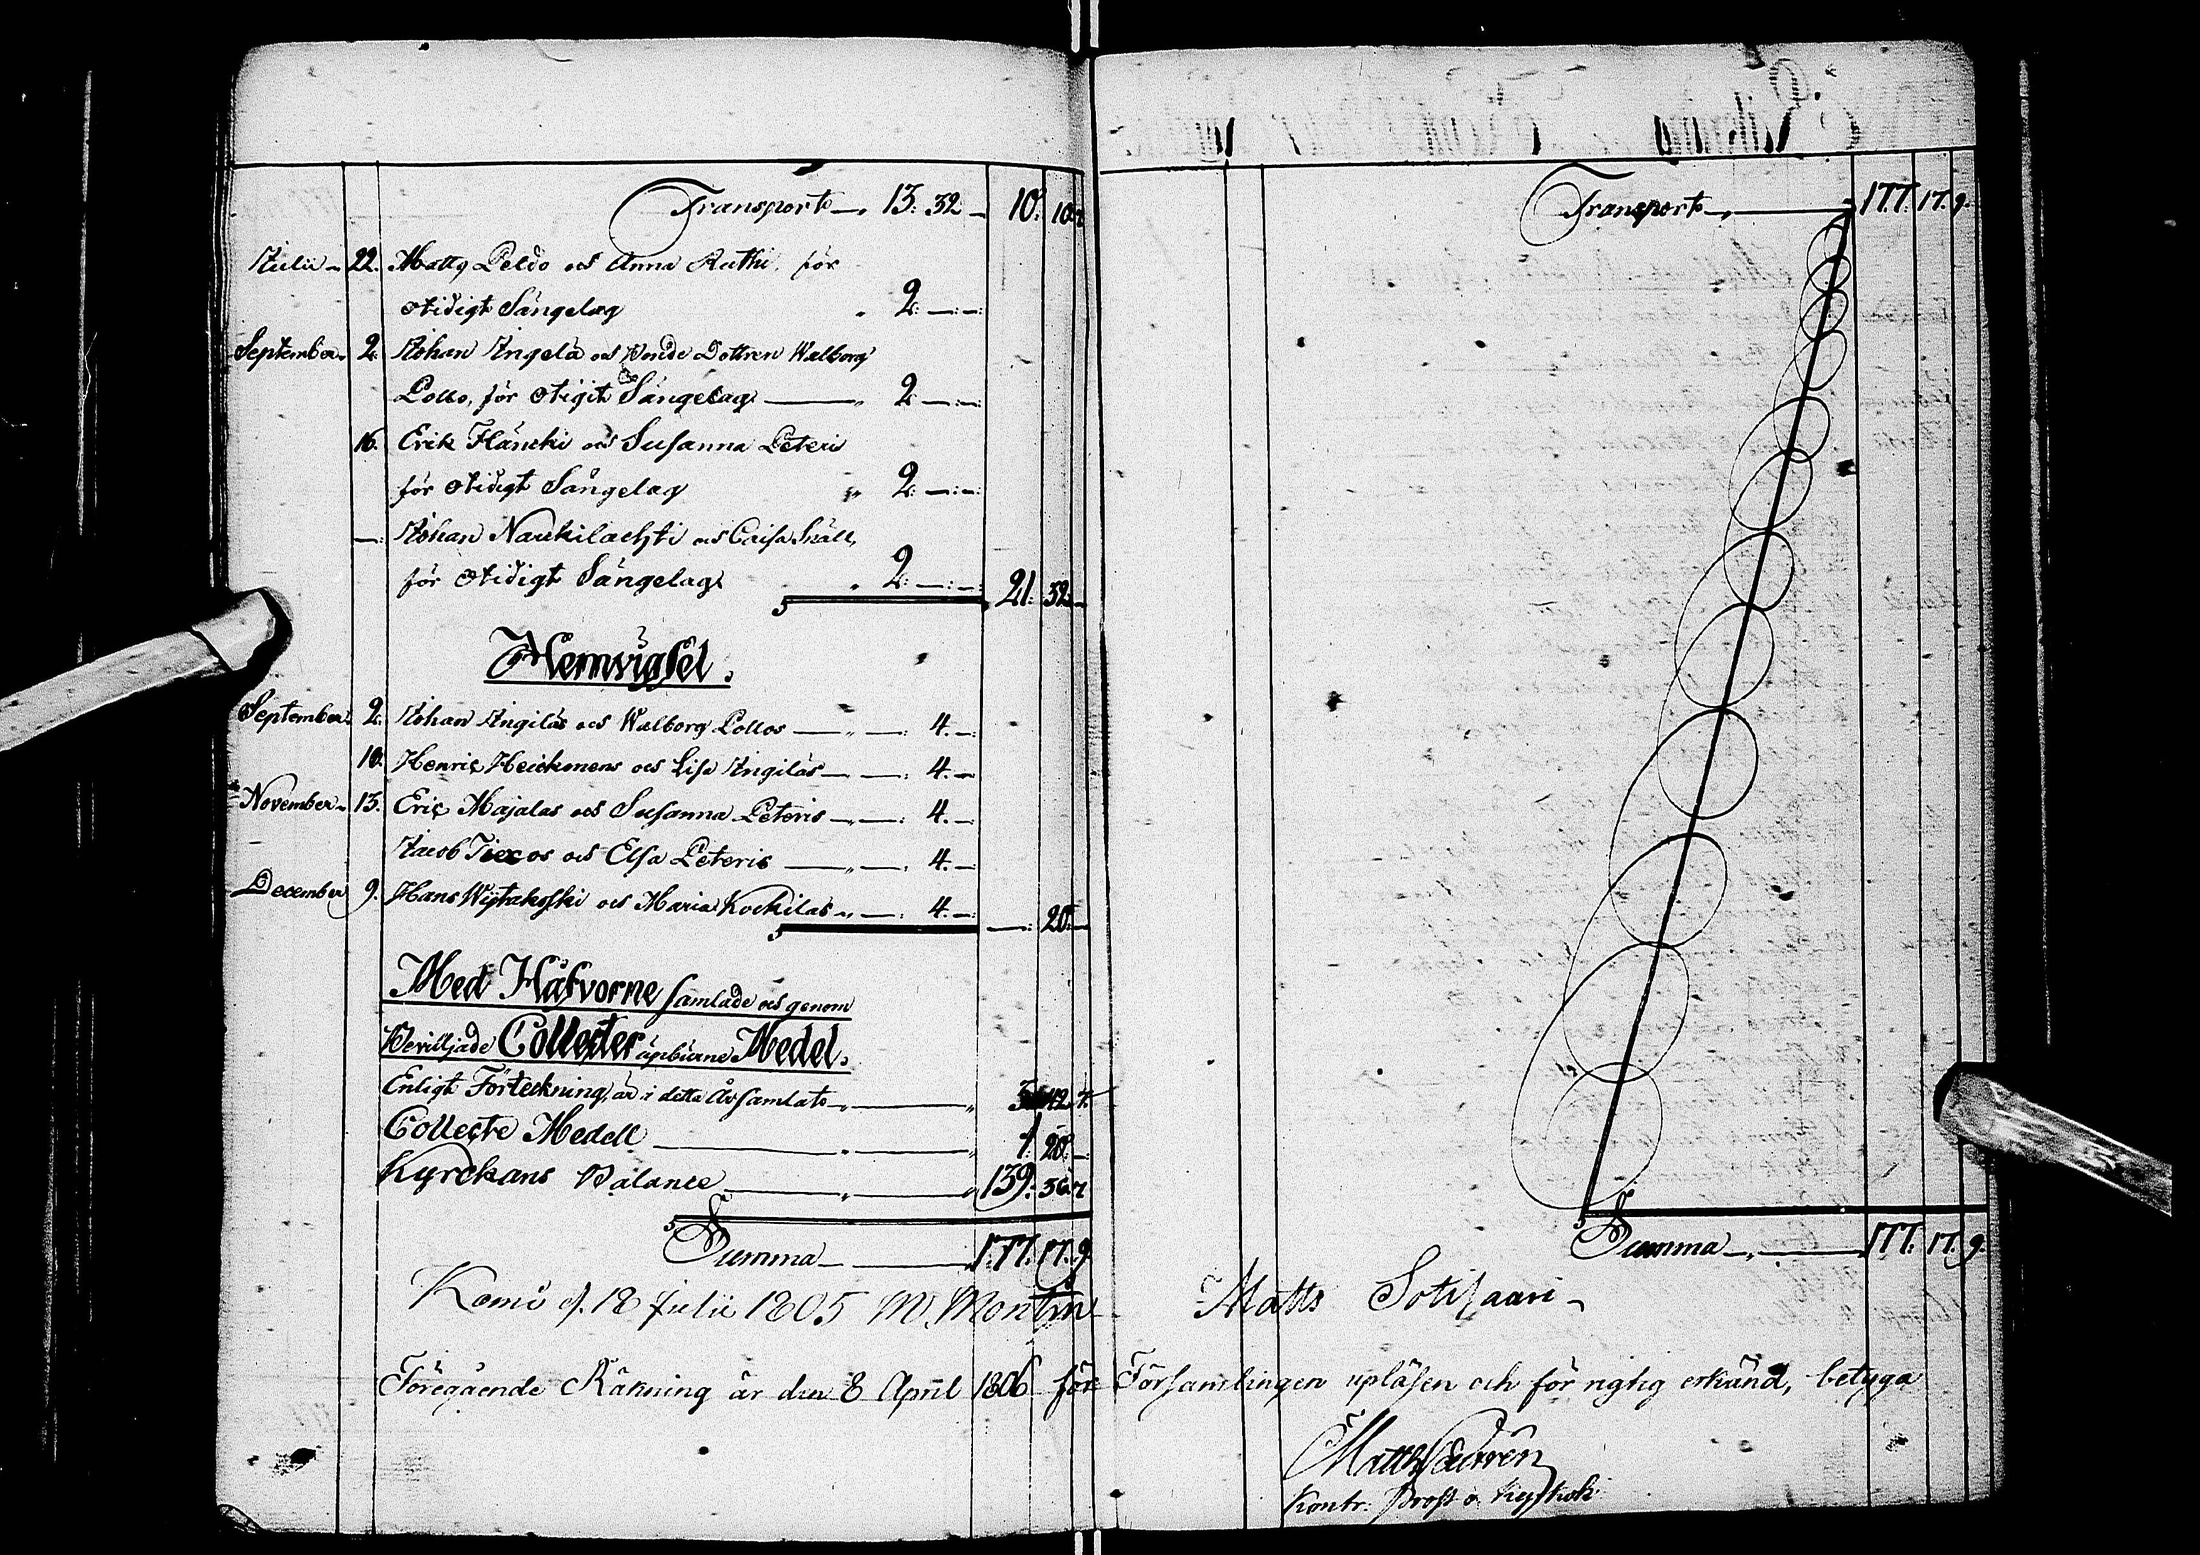 Transport 13. 32 10. 10.
Julii 22. Matts Peldo och Anna Ruthi, för
otidigt Sängelag 2.
September 2. Johan Angela och Bonde Dottren Walborg
Pollo, för otigit Sängelag 2.
16. Erik Fläncki och Susanna Peteri
för otidigt Sängelag 2.
Johan Nauckilachti och Caisa
för otidigt Sängelag 2. 21. 32.
Hemvigsel.
September 2. Johan Angilas och Walborg Pollos 4.
10. Henric Heickmens och Lisa Angilas 4.
November 13. Eric Majalas och Susanna Peteris 4.
Jacob och Elsa Peteris 4.
December 9. Hans och Maria Kockilas 4. 20.
Med Håfvorne samlade och genom
Beviljade Collecter Medel.
Enligt Förteckning, är i detta År samlats 42.
Collecte Medell 1. 20.
Kyrckans Balance 139. 36.
Summa 177. 17. 9
Kemi d. 18 Julii 1805 M. Montin
Föregående Räkning är den 8 April 1806 för
Transport 177. 17. 9.
Summa 177. 17. 9.
Matts Sotisaari
Församlingen upläsen och för rigtig erkänd, betyga
Matth
Kontr: Prost o.